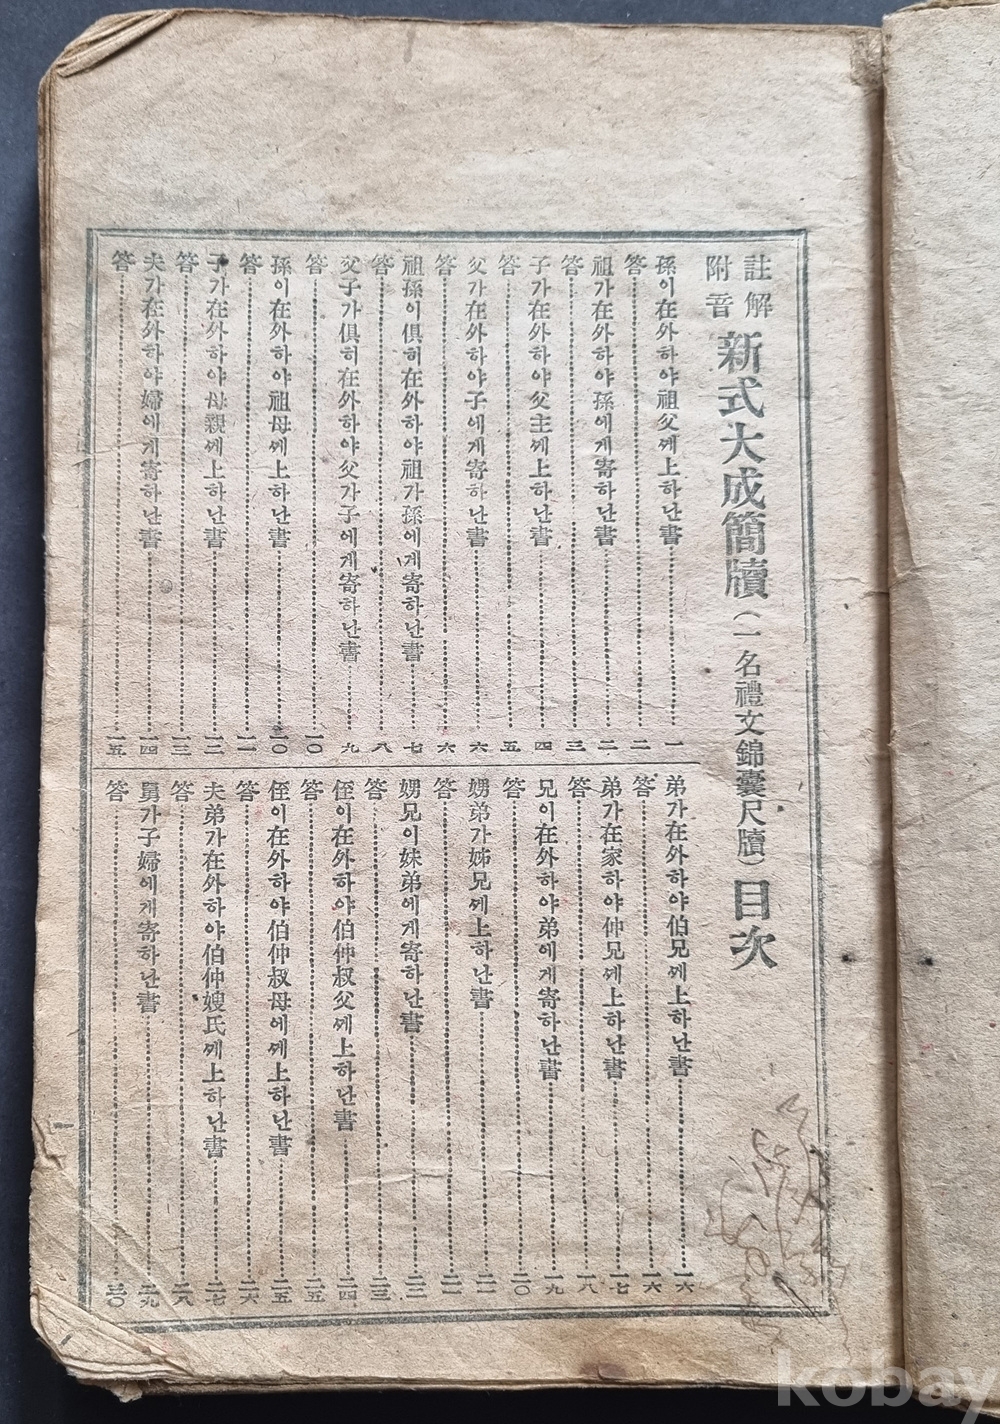 註解
附音
新式大成簡牘(一名禮文錦囊尺牘)目次
孫이在外하야祖父께上하난書 一
答 二
祖가在外하야孫에게寄하난書 二
答 三
子가在外하야父主께上하난書 四
答 五
父가在外하야子에게寄하난書 六
答 六
祖孫이俱히在外하야祖가孫에게寄하난書 七
答 八
父子가俱히在外하야父가子에게寄하난書 九
答 一〇
孫이在外하야祖母께上하난書 一〇
答 一一
子가在外하야母親께上하난書 一二
答 一三
夫가在外하야婦에게寄하난書 一四
答 一五
弟가在外하야伯兄께上하난書 一六
答 一六
弟가在家하야仲兄께上하난書 一七
答 一八
兄이在外하야弟에게寄하난書 一九
答 二〇
娚弟가姊兄께上하난書 二一
答 二一
娚兄이妹弟에게寄하난書 二二
答 二三
侄이在外하야伯仲叔父께上하난書 二四
答 二五
侄이在外하야伯仲叔母에께上하난書 二五
答 二六
夫弟가在外하야伯仲嫂氏께上하난書 二七
答 二八
舅가子婦에게寄하난書 二九
答 三〇
一
kobay